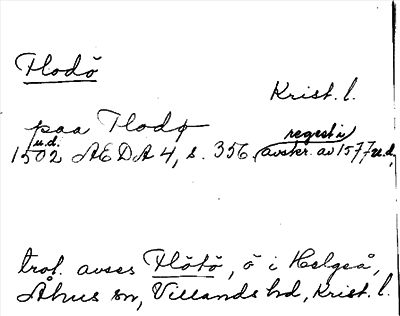 Flodö
Krist. l.
paa Flodø
u.d. regest i
1502 AEDA 4, s. 356, avskr. av 1577 u.d.
trol. avses Flötö, ö i Helgeå,
Åhus sn, Villands hd, Krist. l.